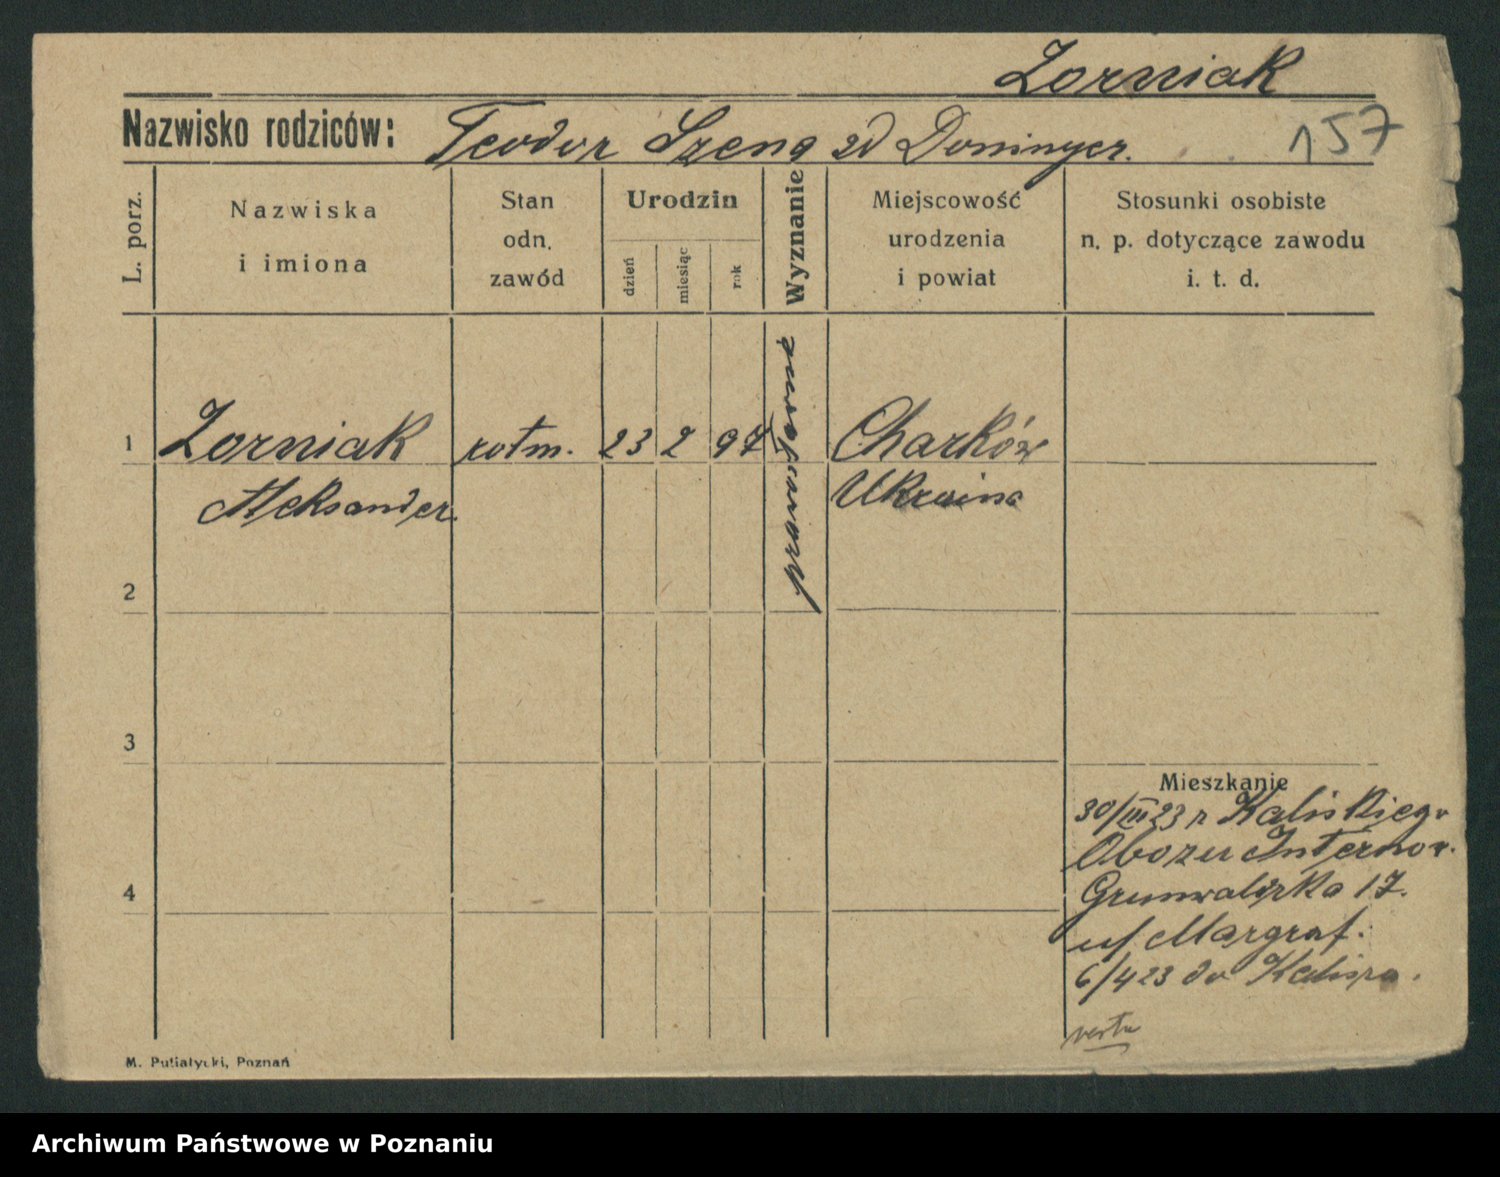 Zorniak
Nazwisko rodziców: Teodor Szena zd Doninger.
157
L. porz.
Nazwiska
i imiona
Stan
odn.
zawód
Urodzin
dzień
miesiąc
rok
Wyznanie
Miejscowość
urodzenia
i powiat
Stosunki osobiste
n. p. dotyczące zawodu
i. t. d.
1
Zorniak
Aleksander.
rotm.
23
2
97
Charków
Ukraina
2
3
4
Mieszkanie
30/III 23 z Kaliskiego
Obozu Internow.
Grunwaldzka 17.
u/ Margraf.
6/4 23 do Kalisza.
verte
M. Putiatycki, Poznań
Archiwum Państwowe w Poznaniu